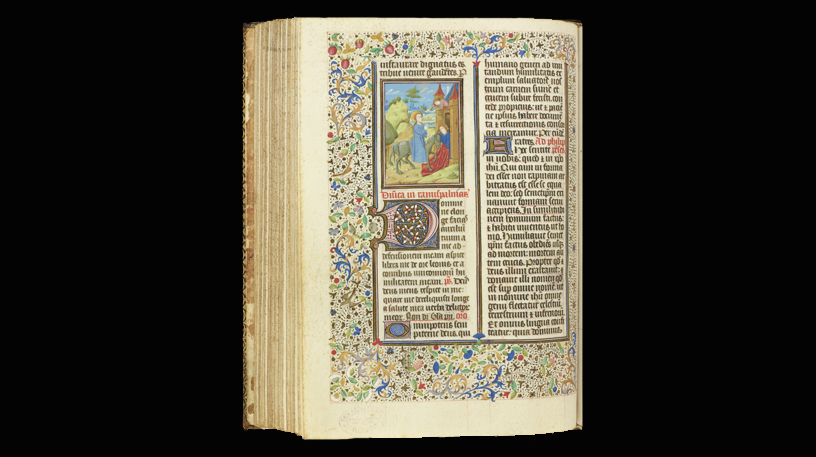 instaurare dignatus es
tribue venire gaudētes. P
Dñica in ramispalmar᷒
Domine
ne elon
ge facias
auxiliū
tuum a
me ad
defensionem meam aspice
libera me de ore leonis et a
cornibus unicornioꝝ hu
militatem meam. ps. Deꝰ
deus meus respice in me:
quare me dereliquisti longe
a salute mea verba delictoꝝ
meoꝝ. Non dr̄ Glia pr̄i. oro
Omnipotens sem
piterne deus, qui
humano generi ad imi
tandum humilitatis ex
emplum salvatorē nos
trum carnem sumē et
crucem subire fecisti. con
cede propicius. ut et pacie
tie ipsius habere docume
ta et resurrectionis consor
cia mereamur. Per eūdē
Fratres. Ad philip
Hoc sentite pēses
in vobis. quod et in xp̄o
ihū. Qui cum in forma
dei esset non rapinam ar
bitratus est esse se equa
lem deo. sed semetip̄m exi
nanivit formam servi
accipiens. In similitudi
nem hominum factus.
et habitu inventus ut ho
mo. Humiliavit semet
ip̄m factus obediēs usqꝫ
ad mortem: mortem au
tem crucis. Propter qd̄ et
deus illum exaltavit: et
donavit illi nomen qd̄
est sup omne nomē. ut
in nomine ihū omne
genu flectatur celestiū,
terrestrium et infernorū.
Et omnis lingua confi
teatur. quia dominus